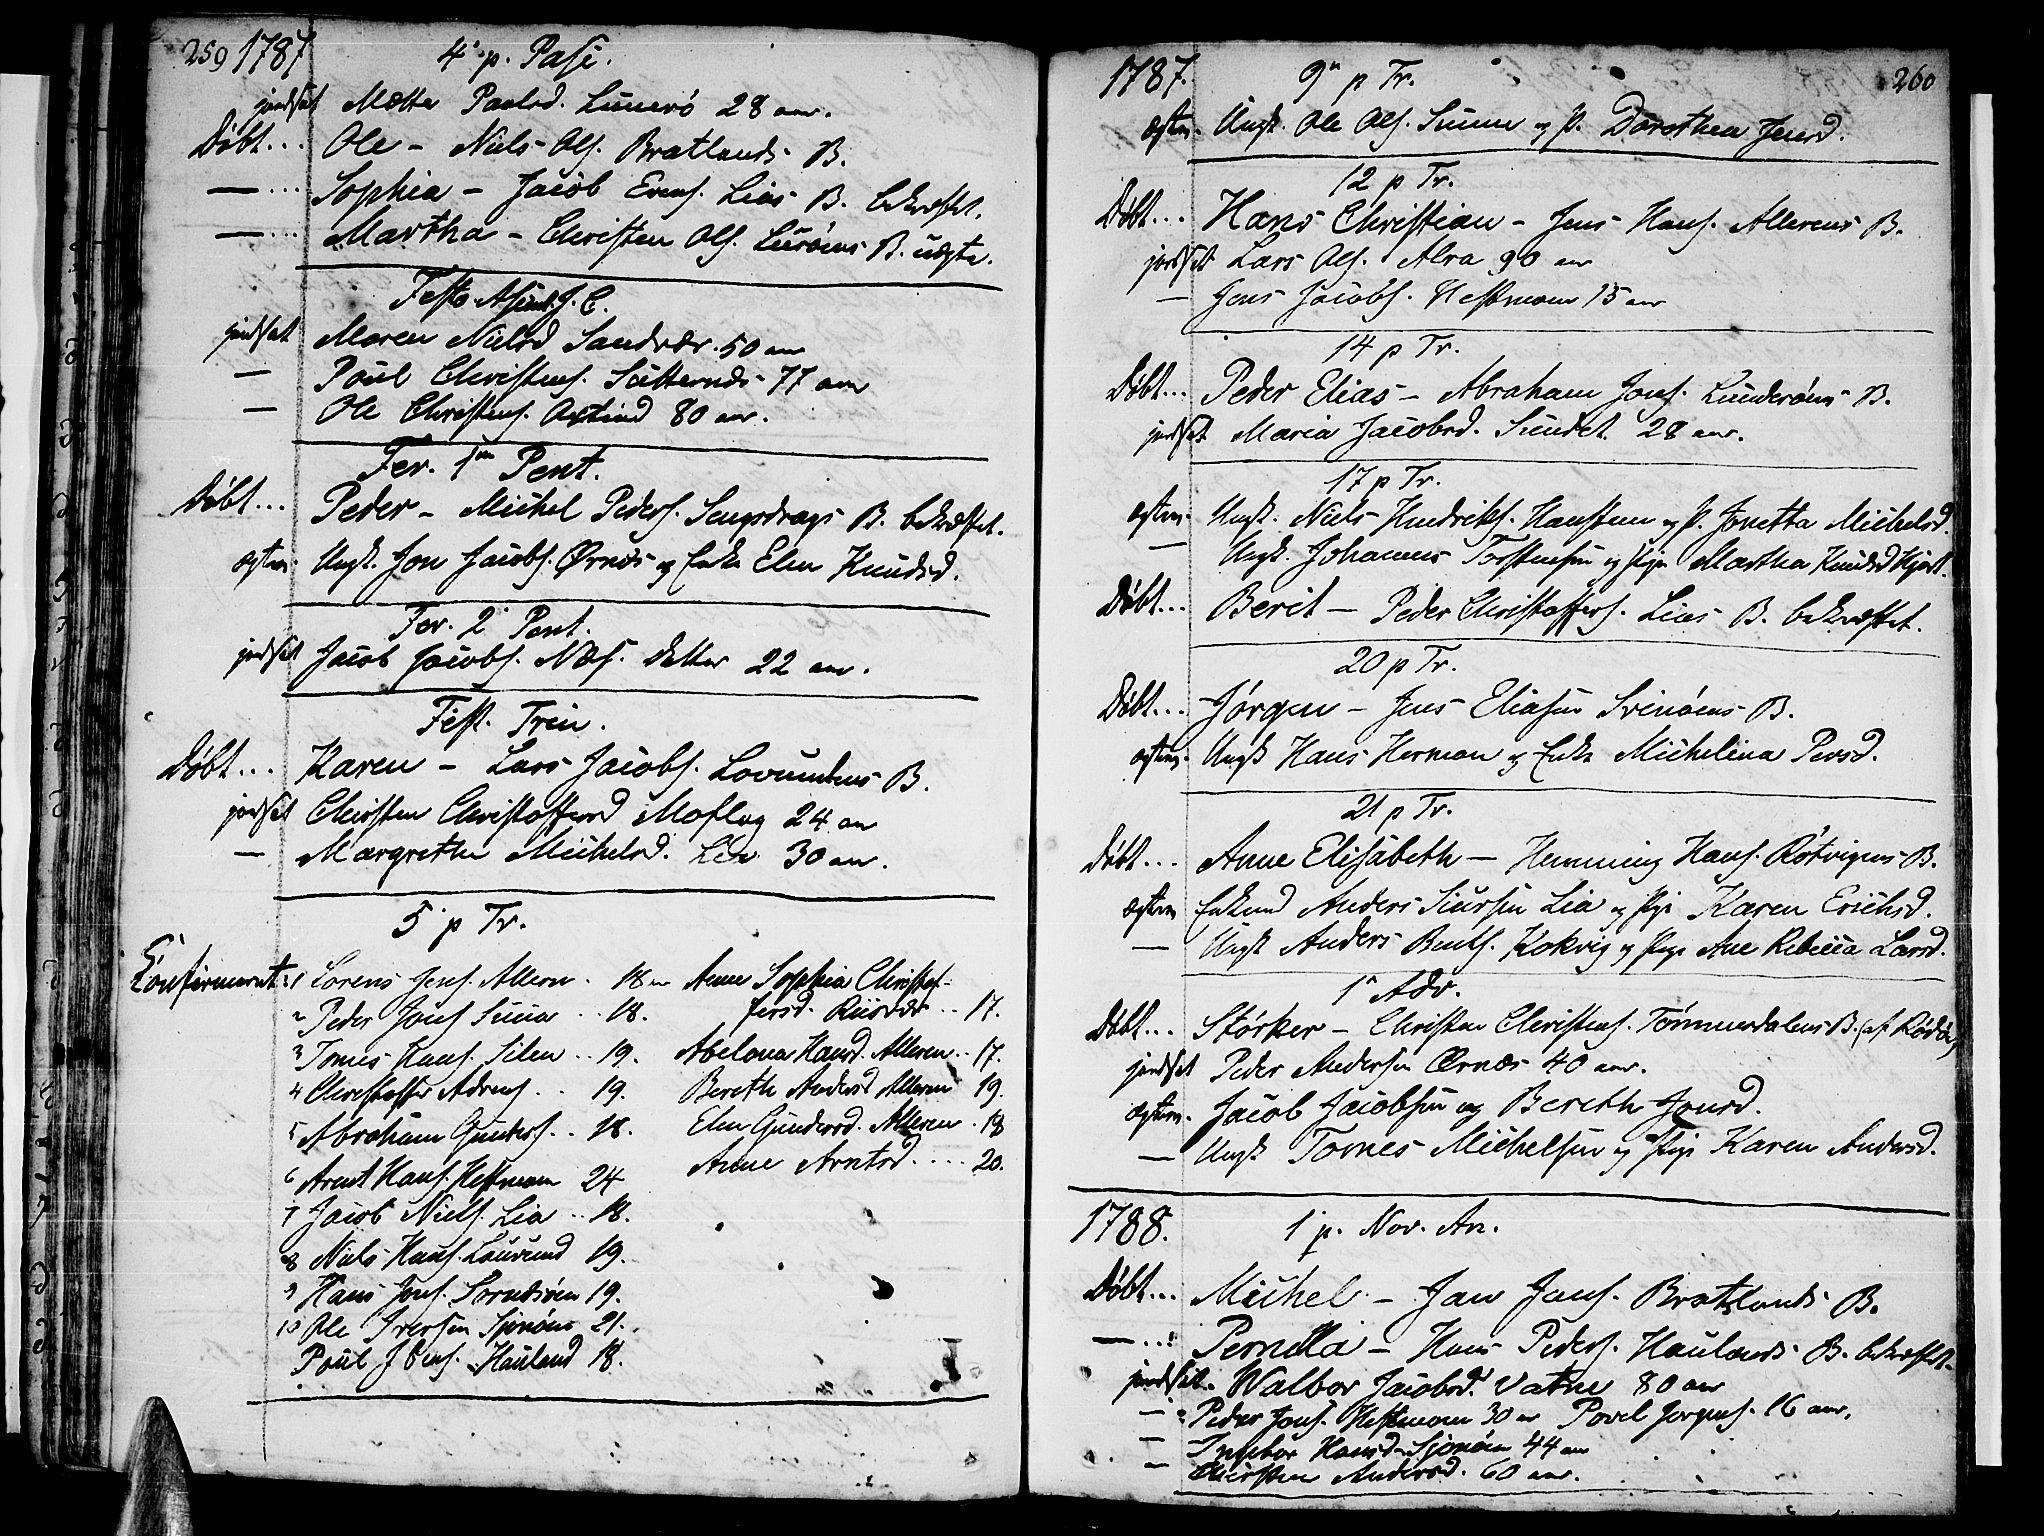 259 1787 4de p. Pasc.
jordset Mætte Paulsd. Lunerö 28 aar.
Döbt... Ole - Niels Ols. Bratlands B.
— ... Sophia - Jacob Evens. Lias B. bekræftet.
— ... Martha - Christen Ols. Luröens B. uægte.
Festo Ascens. J. C.
jordset Maren Nielsd Sandvær. 50 aar
— Poul Christens. 77 aar
— Ole Christens. 80 aar.
Fer. 1ma Pent.
Döbt... Peder - Michel Peders. Sengsdrags B. bekræftet.
ægtev. Ungk. Jon Jacobs. Ørnæs og Enke Elen Knudsd.
Fer. 2 Pent.
jordset Jacob Jacobs. Næs. datter 22 aar.
Fest. Trin.
Döbt... Karen - Lars Jacobs. Lovundens B.
jordset Christen Christoffersd Moflag 24 aar
— Margrethe Michelsd. Lia 30 aar.
5 p Tr.
Confirmert: 1 Lorens Jens. Alleren . 18 aar
2 Peder Jons. .. 18.
3 Tomes Hans. Silen .. 19.
4 Christoffer Adrens. .. 19.
5 Abraham Gunders. .. 18.
6 Arent Hans. Hestmoen 24
7 Jacob Niels. Lia .. 18.
8 Niels Hans. Louvund 19.
9 Hans Jons. 19.
10 Ole Iversen Sjonöen 21.
Poul Hauland 18.
Anne Sophia Christof-
fersd. .. 17.
Abelona Hansd. Alleren .. 17.
Bereth Andersd Alleren 19.
Elen Gundersd. Alleren . 18
Anne Arntsd .... 20.
1787. 9n p Tr. 260
ægtev. Ungk. Ole Ols. og P. Dorothea Jensd.
12 p Tr.
Döbt... Hans Christian - Jens Hans. Allerens B.
jordset Lars Ols. Alra 90 aar
— Jens Jacobs. Hestmoen 15 aar
14 p Tr.
Döbt... Peder Elias - Abraham Jons. Lunderöens B.
jordset Maria Jacobsd. Sundet. 28 aar.
17 p Tr.
ægtev. Ungk. Niels Hendriks. og P. Jonetta Michelsd.
— Ungk. Johannes Torstensen og Pige Martha Knudsd Hjart.
Döbt... Berit - Peder Christoffers. Lias B. bekræftet.
20 p Tr.
Döbt... Jörgen - Jens Eliasen Svinöens B.
ægtev. Ungk Hans Herman og Enke Michelina Persd.
21 p Tr.
Döbt... Anne Elisabeth - Hemming Hans. Rötvigens B.
ægtev Enkemd Anders Siursen Lia og Pige Karen Erichsd.
— Ungk Anders Bents. Kokvig og Pige Ane Rebecca Larsd.
1 Adv.
Döbt... Störker - Christen Christens. Tömmerdalens B. (af Rödöe)
jordset Peder Andersen Ørnæs 40 aar.
ægtev. Jacob Jacobsen og Bereth Jonsd.
— Ungk Tomes Michelsen og Pige Karen Andersd.
1788. 1 p. Nov. An.
Döbt... Michel - Jan Jans. Bratlands B.
— ... Pernilla - Hans Peders. Haulands B. bekræftet.
jordset. Walbor Jacobsd. Vatne 80 aar
— Peder Jons. Hestmoen 30 aar Povel Jorgens. 16 aar.
— Ingebor Hansd. Sjonöen 44 aar
— Christen Andersd. 60 aar.